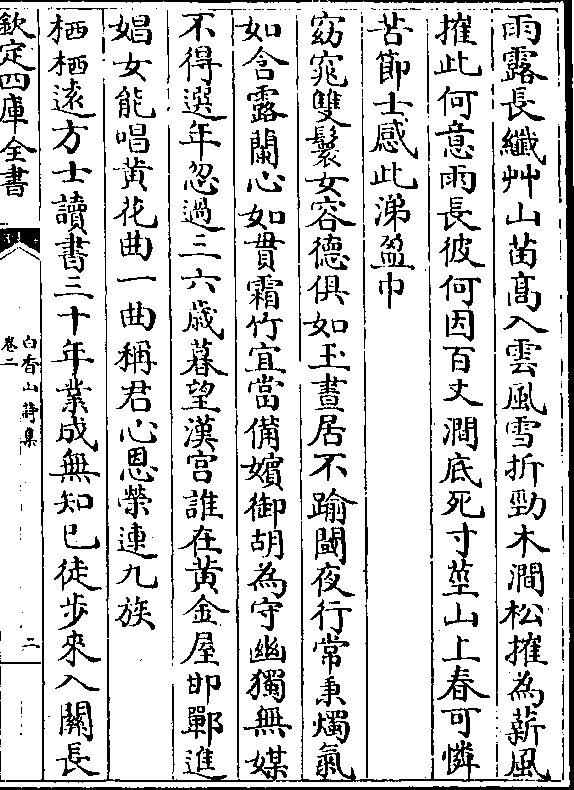 雨露長纖艸山苗高入雲風雪折勁木澗松摧為薪風
摧此何意雨長彼何因百丈澗底死寸莖山上春可憐
苦節士感此涕盈巾
窈窕雙鬟女容德俱如玉晝居不踰閾夜行常秉燭氣
如含露蘭心如貫霜竹宜當備嬪御胡為守幽獨無媒
不得選年忽過三六歲暮望漢宮誰在黃金屋邯鄲進
娼女能唱黃花曲一曲稱君心恩榮連九族
栖栖遠方士讀書三十年業成無知已徒步來入關長
欽定四庫全書
白香山詩集
卷二
二